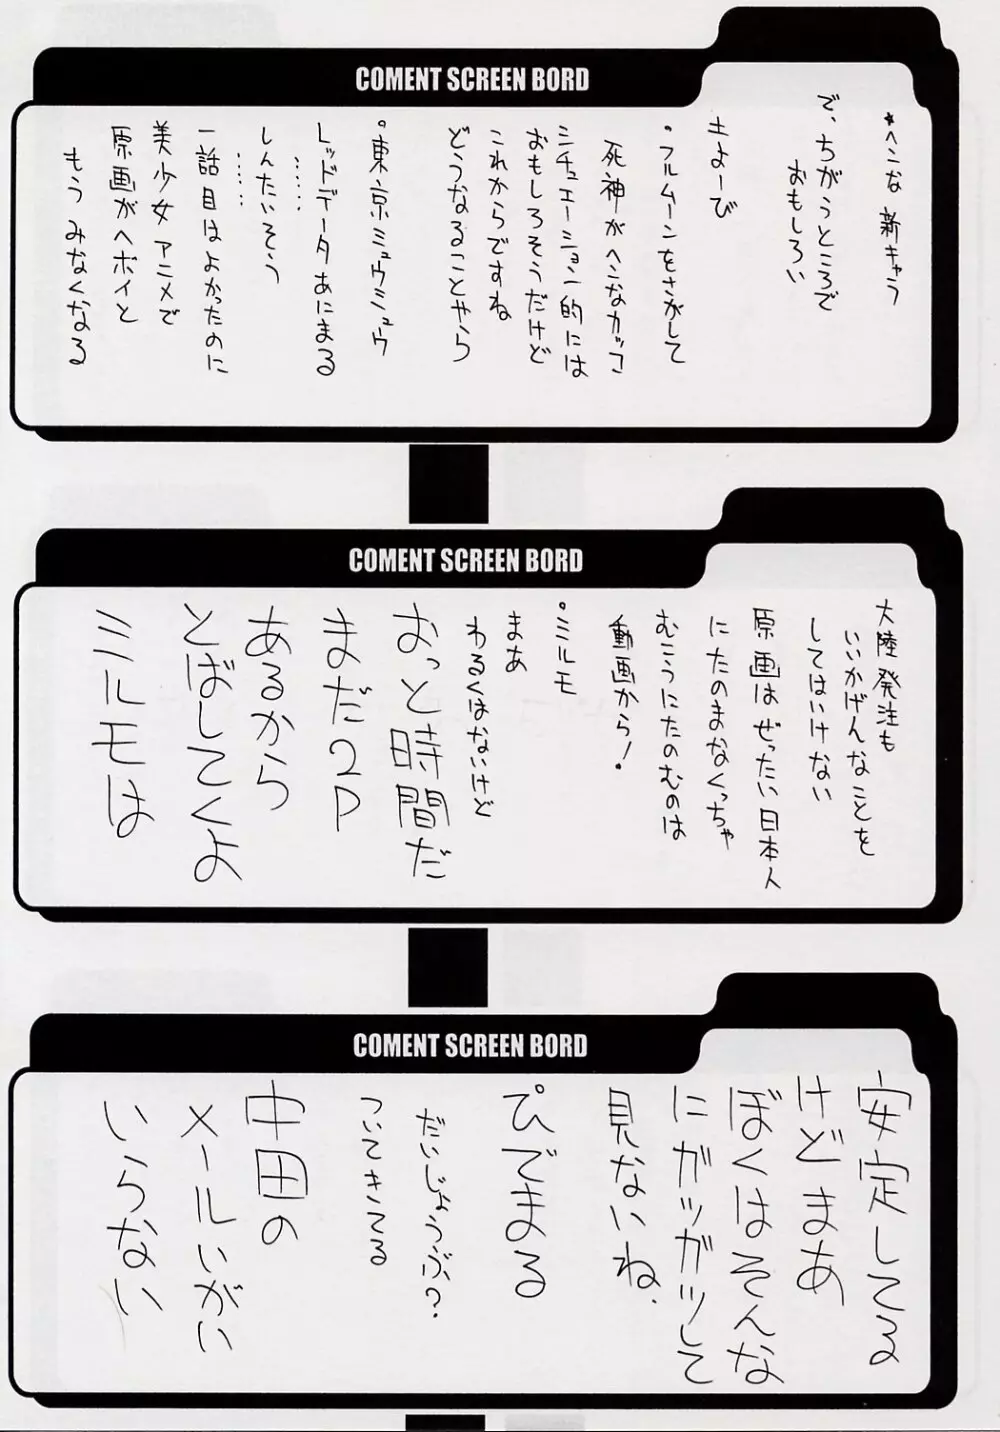 COMENT SCREEN BORD
*ヘンな 新キャラ
で、ちがうところで
おもしろい
土よーび
・フルムーンをさがして
死神がヘンなカッコ
シチュエーション的には
おもしろそうだけど
これからですね
どうなることやら
・東京ミュウミュウ
レッドデータあにまる
……
しんたいそう
……
一話目はよかったのに
美少女アニメで
原画がヘボイと
もう みなくなる
COMENT SCREEN BORD
大陸発注も
いいかげんなことを
してはいけない
原画はぜったい日本人
にたのまなくっちゃ
むこうにたのむのは
動画から!
・ミルモ
まあ
わるくはないけど
おっと時間だ
まだ2P
あるから
とばしてくよ
ミルモは
COMENT SCREEN BORD
安定してる
けど まあ
ぼくはそんな
にガッガッして
見ないね.
ぴでまる
だいじょうぶ?
ついてきてる
中田の
メールいがい
いらない